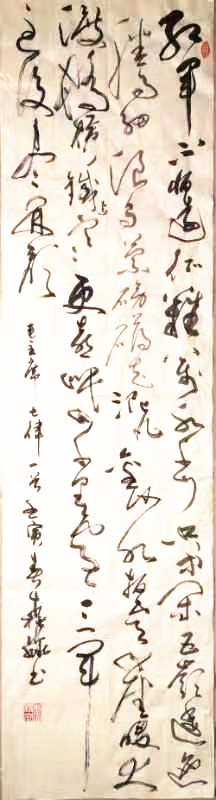 红军不怕遠征難萬水千山只等闲五嶺逶迤
腾细浪乌蒙磅礴走泥丸金沙水拍云崖暖大
渡桥横鐵索寒更喜岷山千里雪三军
过後尽開颜 毛主席七律一首壬寅春 书